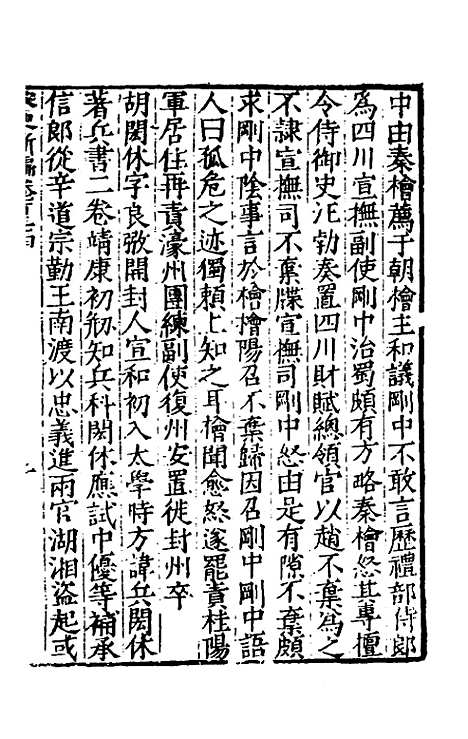 中由秦檜薦于朝檜主和議剛中不敢言歷禮部侍郎
爲四川宣撫副使剛中治蜀頗有方略秦檜怒其專擅
令侍御史汪勃奏置四川財賦總領官以趙不棄爲之
不隷宣撫司不棄牒宣撫司剛中怒由是有隙不棄頗
求剛中陰事言於檜檜陽召不棄歸因召剛中剛中語
人曰孤危之迹獨頼上知之耳檜聞愈怒遂罷責桂陽
軍居住再責濠州團練副使復州安置徙封州卒
胡閎休字良弢開封人宣和初入太學時方諱兵閎休
著兵書二卷靖康初剏知兵科閎休應試中優等補承
信郎從辛道宗勤王南渡以忠義進兩官湖湘盗起或